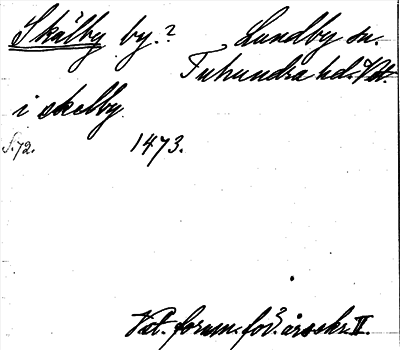 Skälby by.? Lundby sn.
Tuhundra hd. Vstm.
i skelby.
S. 72. 1473.
Vstm. fornm. för. årsskr. II.